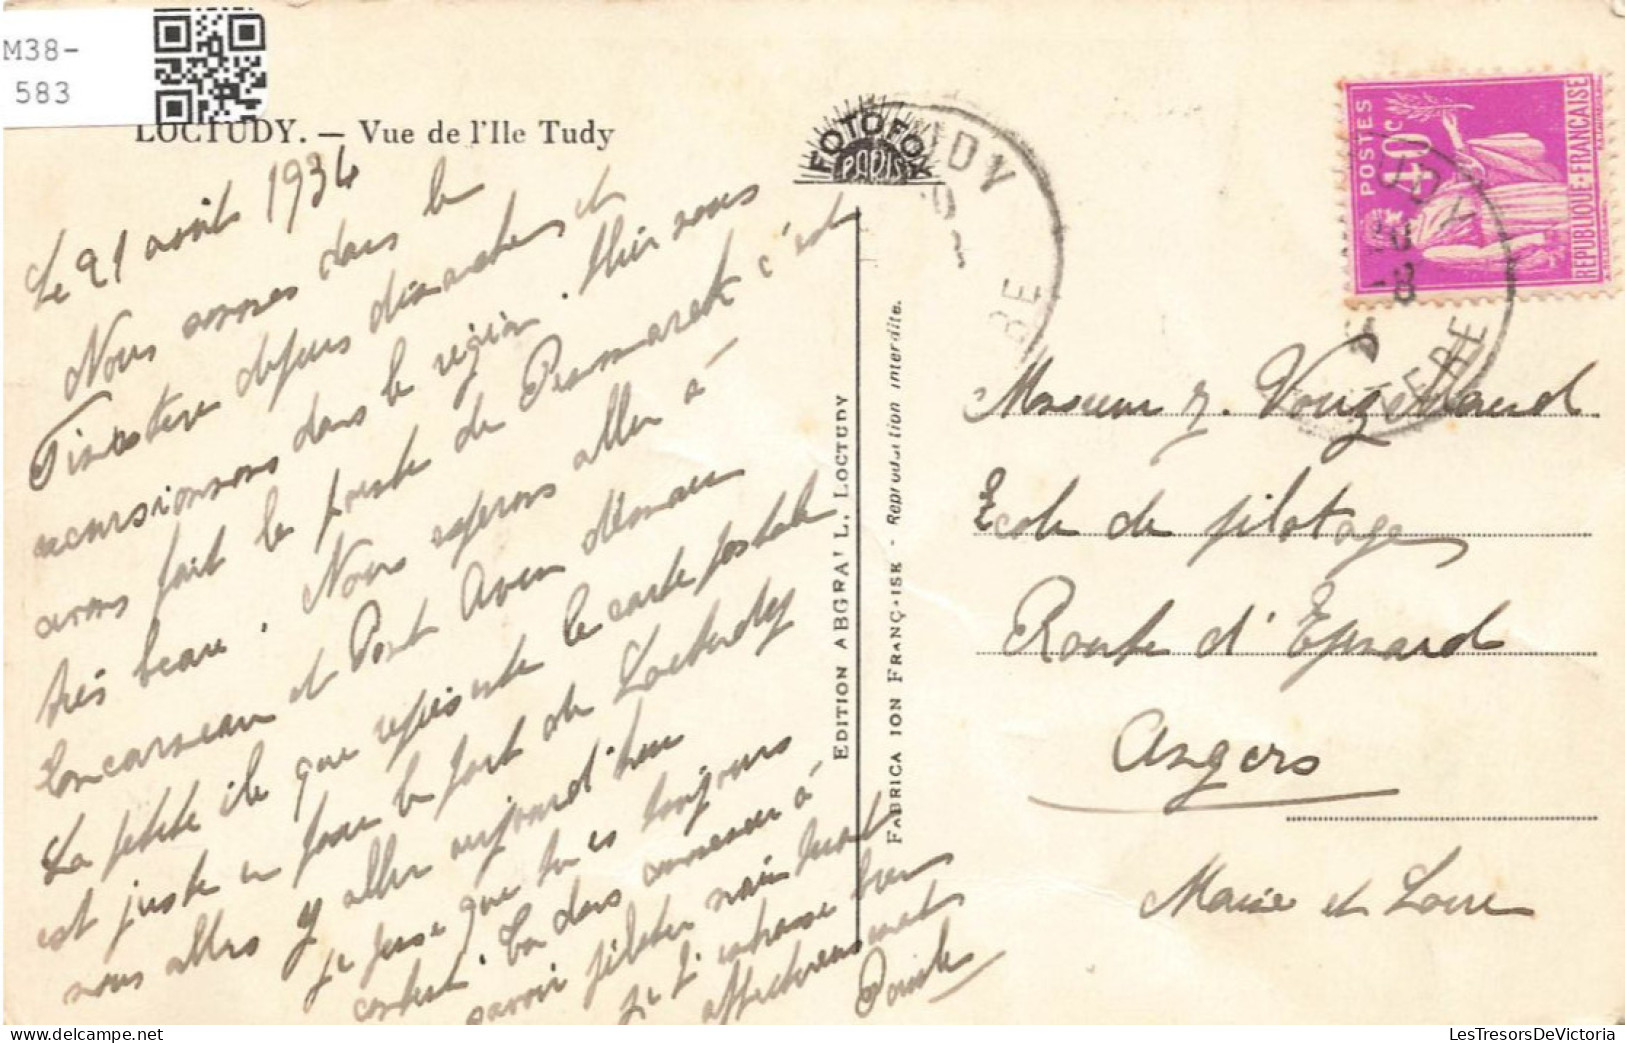 M38-
583
LOCTUDY. — Vue de l'Ile Tudy
FOTOFOX
PARIS
Le 21 août 1934
Nous sommes dans le
Finistère depuis dimanche et
excursionnons dans la région. Hier nous
avons fait la pointe de Penmarch c'est
très beau. Nous espérons aller à
Concarneau et Pont Aven demain
La petite île que représente la carte postale
est juste en face le port de Loctudy
nous allons y aller aujourd'hui
Je pense que tu es toujours
content. Tu dois commencer à
savoir piloter maintenant
Je t'embrasse bien
affectueusement
EDITION ABGRALL, LOCTUDY
FABRICATION FRANÇAISE - Reproduction interdite.
POSTES
40c
REPUBLIQUE·FRANCAISE
UDY
Monsieur J. Vougeaud
Ecole de pilotage
Route d'Epinard
Angers
Maine et Loire
LesTresorsDeVictoria